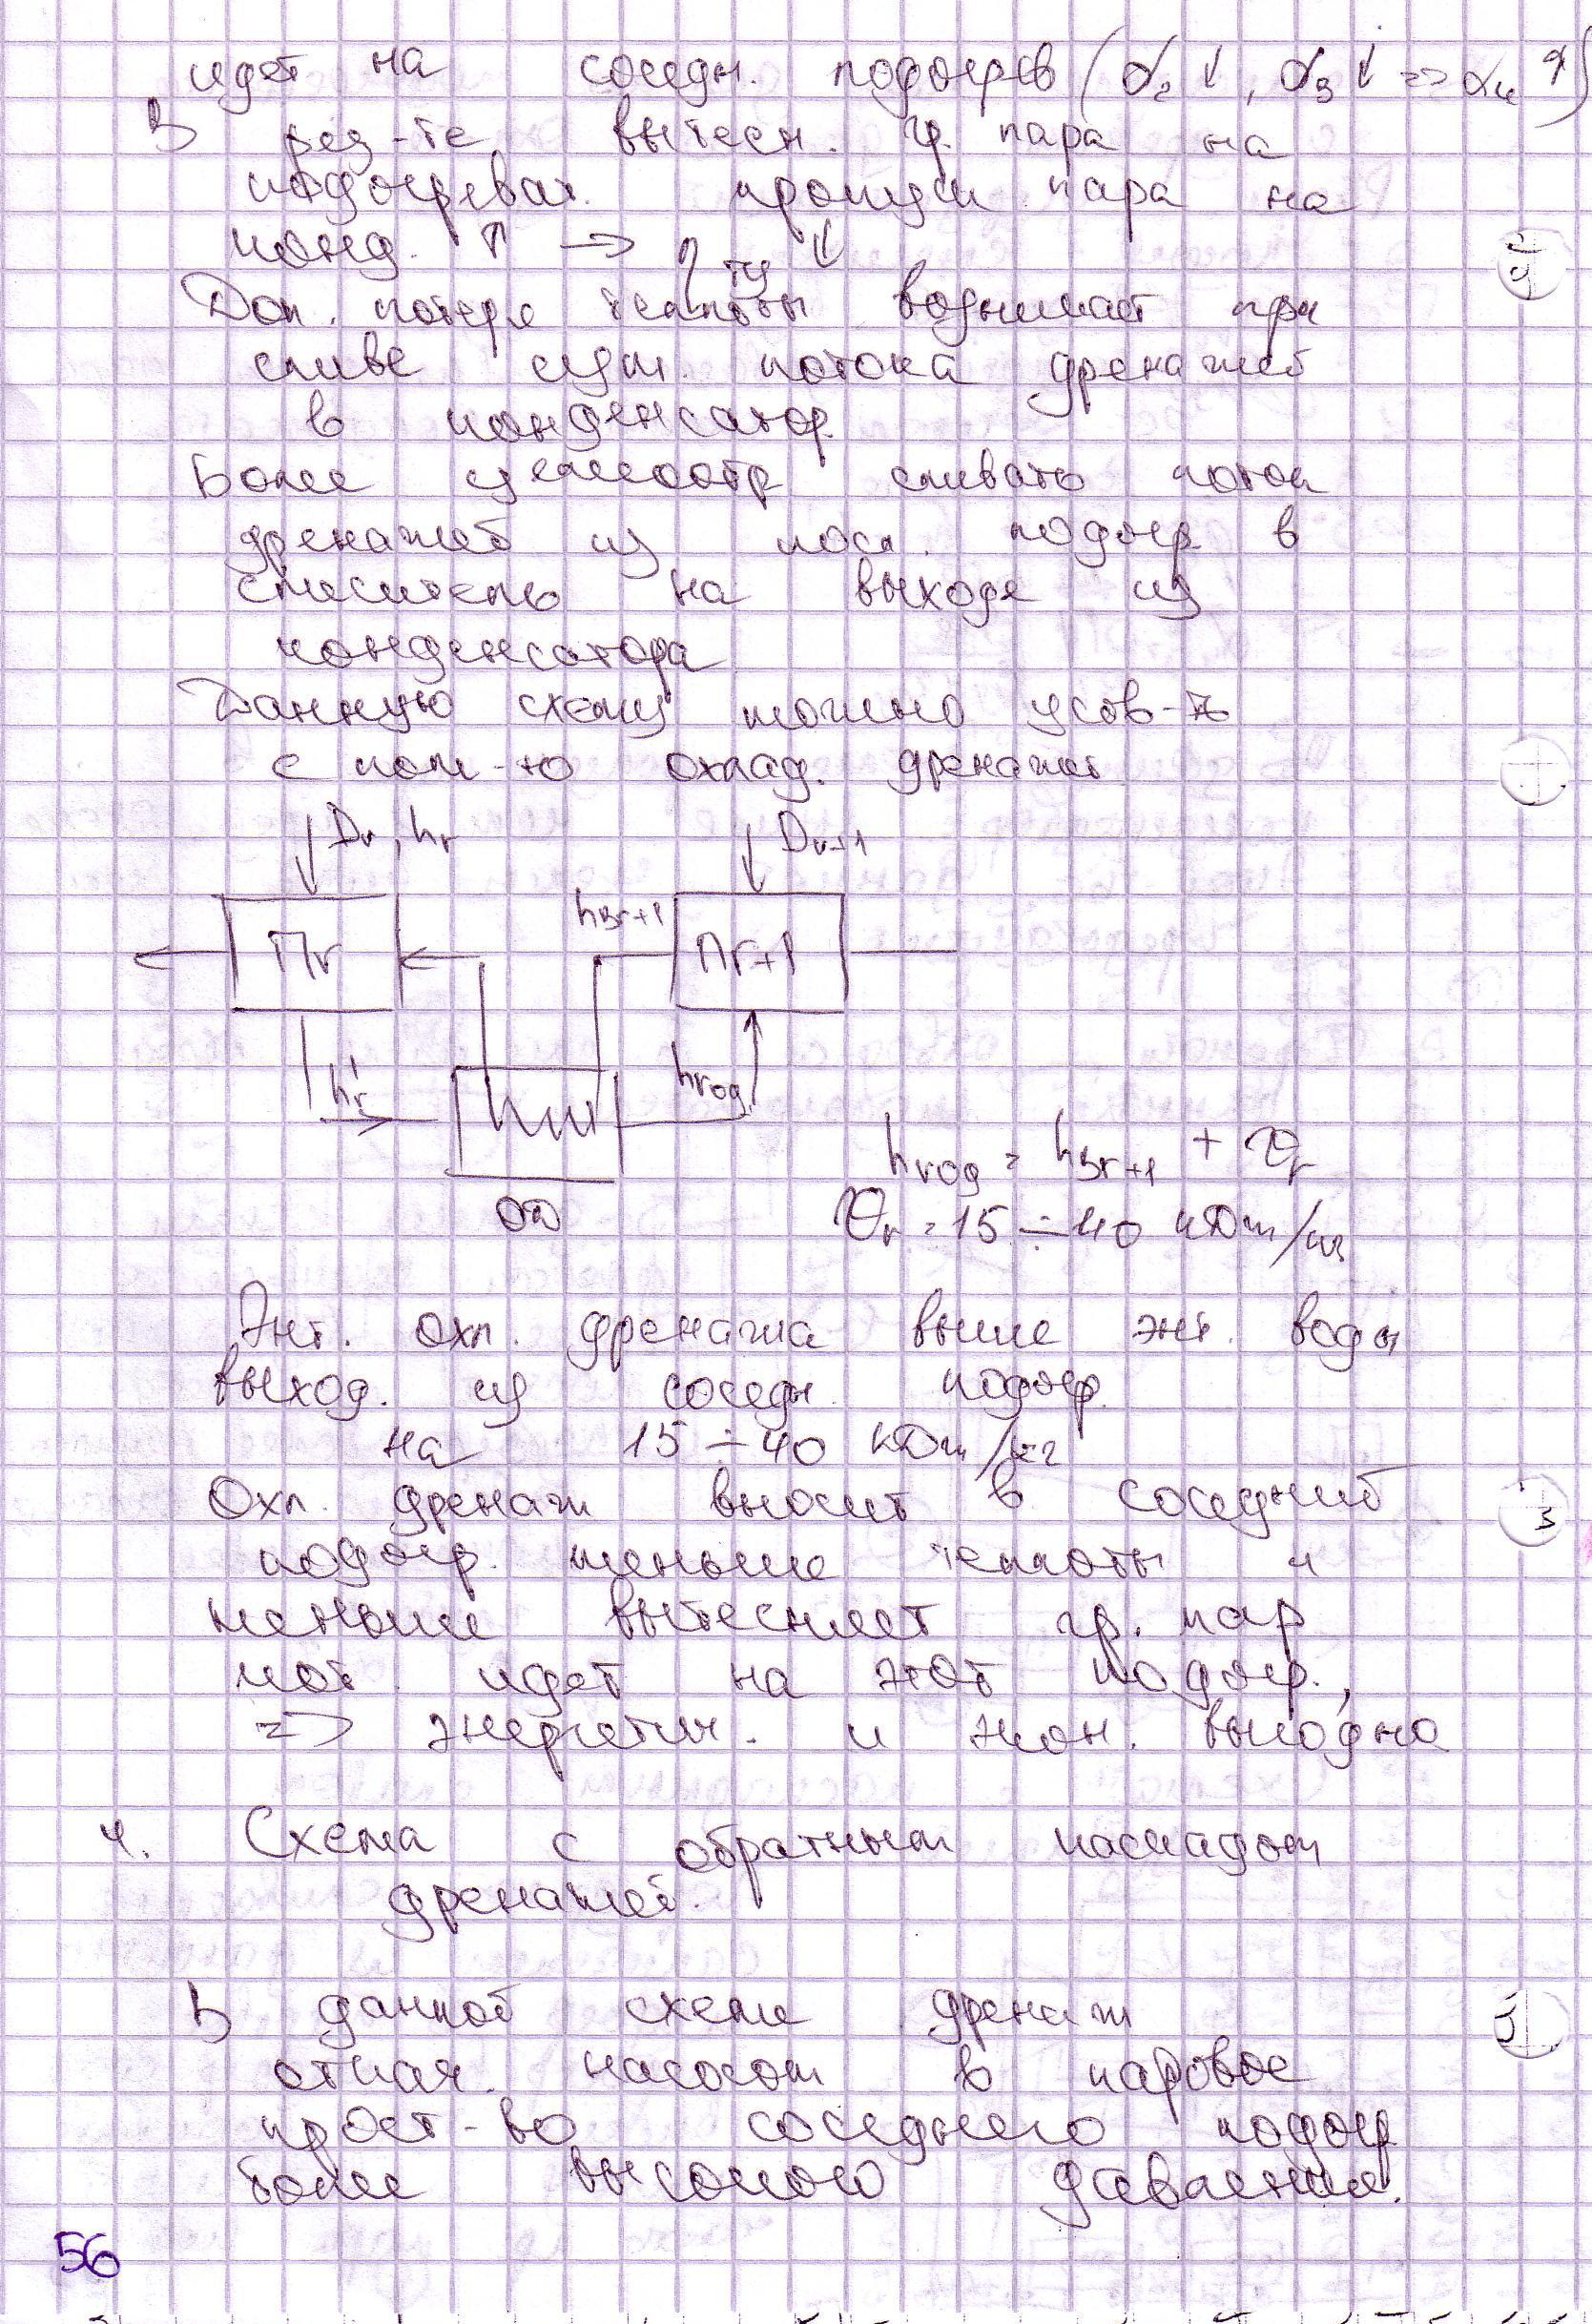 идет на соседн. подогрев (α₂ ↓, α₃ ↓ => α₄ ↑)
В рез-те вытесн. гр. пара на
подогреват. пропуск пара на
конд. ↑ → η ту ↓
Доп. потеря теплоты возникает при
сливе сум. потока дренажей
в конденсатор
Более целесообр сливать поток
дренажей из посл. подогр в
смеситель на выходе из
конденсатора
Данную схему можно усов-ть
с пом-ю охлад. дренажа
Dr, hr Dr+1
Пr hвr+1 Пr+1
h'r hrод
ОД
hrод = hвr+1 + ϑr
ϑr = 15 ÷ 40 кДж/кг
Энт. охл. дренажа выше энт. воды
выход. из соседн. подогр.
на 15 ÷ 40 кДж/кг
Охл. дренаж вносит в соседний
подогр. меньше теплоты и
меньше вытесняет гр. пар
кот. идет на этот подогр.,
=> энергетич. и экон. выгодно
4. Схема с обратным каскадом
дренажей.
В данной схеме дренаж
откач. насосом в паровое
прост-во соседнего подогр
более высокого давления.
56